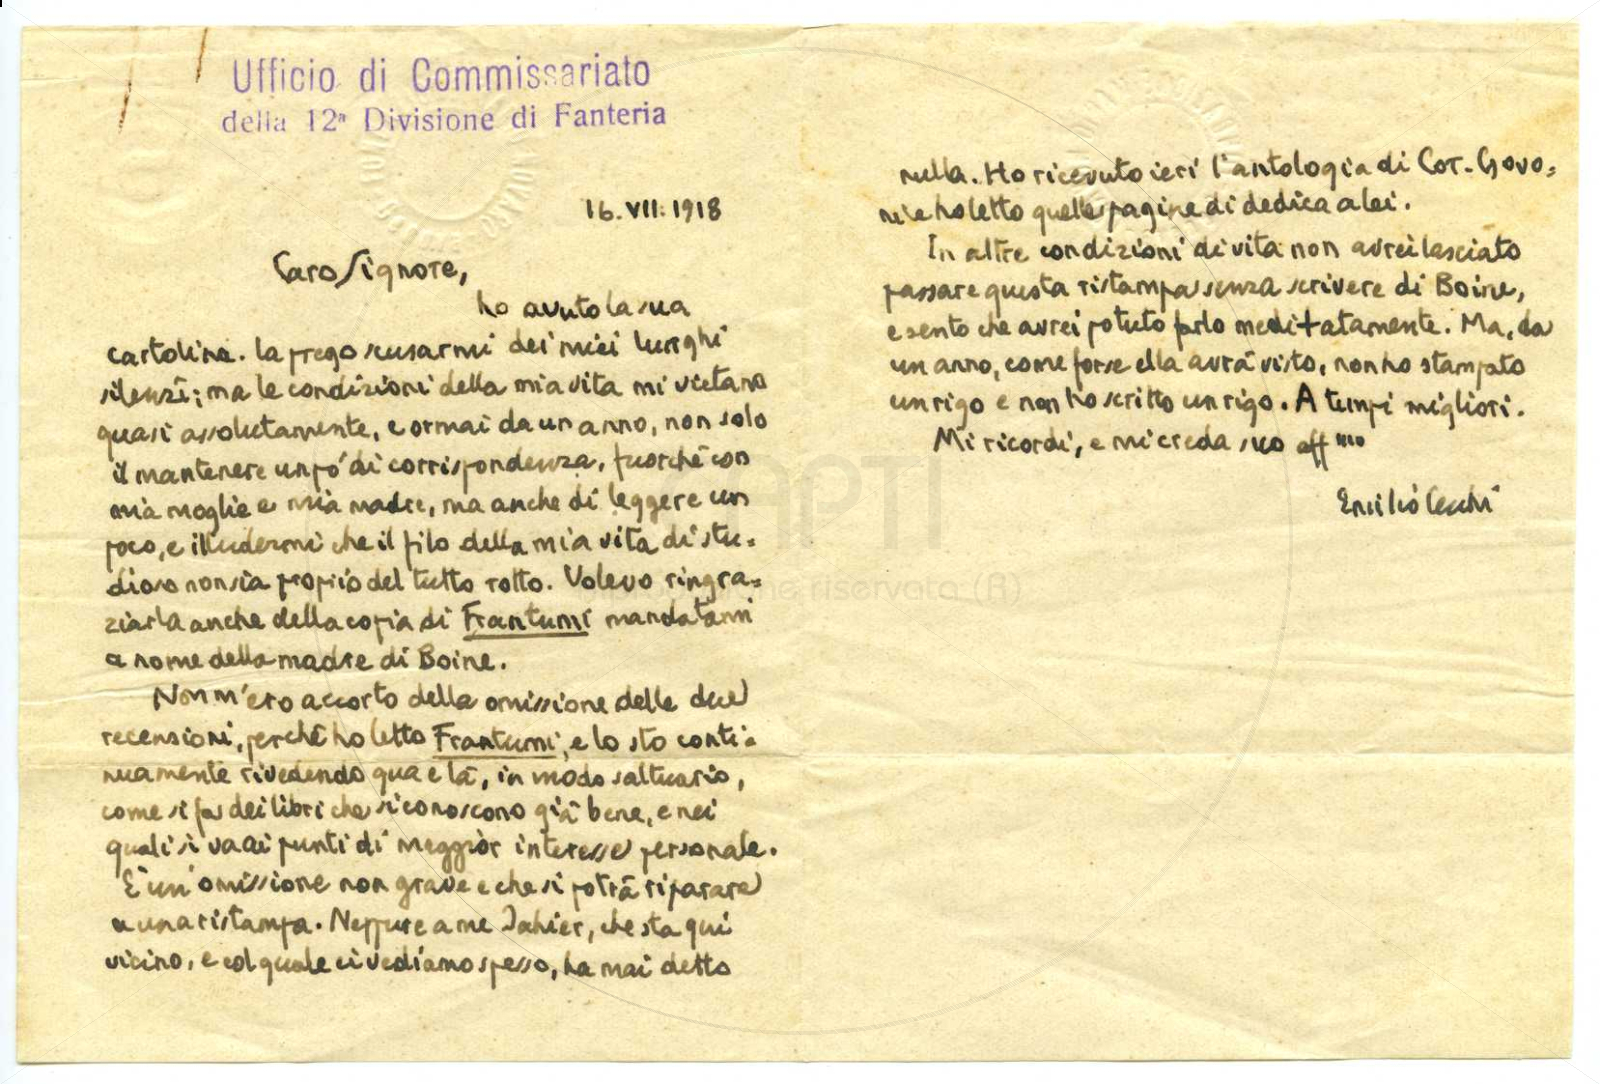 Ufficio di Commissariato
della 12ª Divisione di Fanteria
16.VII.1918
Caro Signore,
ho avuto la sua
cartolina. La prego scusarmi dei miei lunghi
silenzi; ma le condizioni della mia vita mi vietano
quasi assolutamente, e ormai da un anno, non solo
il mantenere un pó di corrispondenza, fuorché con
mia moglie e mia madre, ma anche di leggere un
poco, e illudermi che il filo della mia vita di stu=
dioso non sia proprio del tutto rotto. Volevo ringra=
ziarla anche della copia di Frantumi mandatami
a nome della madre di Boine.
Non m'ero accorto della omissione delle due
recensioni, perché ho letto Frantumi, e lo sto conti=
nuamente rivedendo qua e là, in modo saltuario,
come si fa dei libri che si conoscono già bene, e nei
quali si va ai punti di maggior interesse personale.
È un' omissione non grave e che si potrà riparare
a una ristampa. Neppure a me Jahier, che sta qui
vicino, e col quale ci vediamo spesso, ha mai detto
nulla. Ho ricevuto ieri l'antologia di Cor. Govo=
ni e ho letto quelle pagine di dedica a lei.
In altre condizioni di vita non avrei lasciato
passare questa ristampa senza scrivere di Boine,
e sento che avrei potuto farlo meditatamente. Ma, da
un anno, come forse ella avrà visto, non ho stampato
un rigo e non ho scritto un rigo. A tempi migliori.
Mi ricordi, e mi creda suo aff mo
Emilio Cecchi
riservata (R)